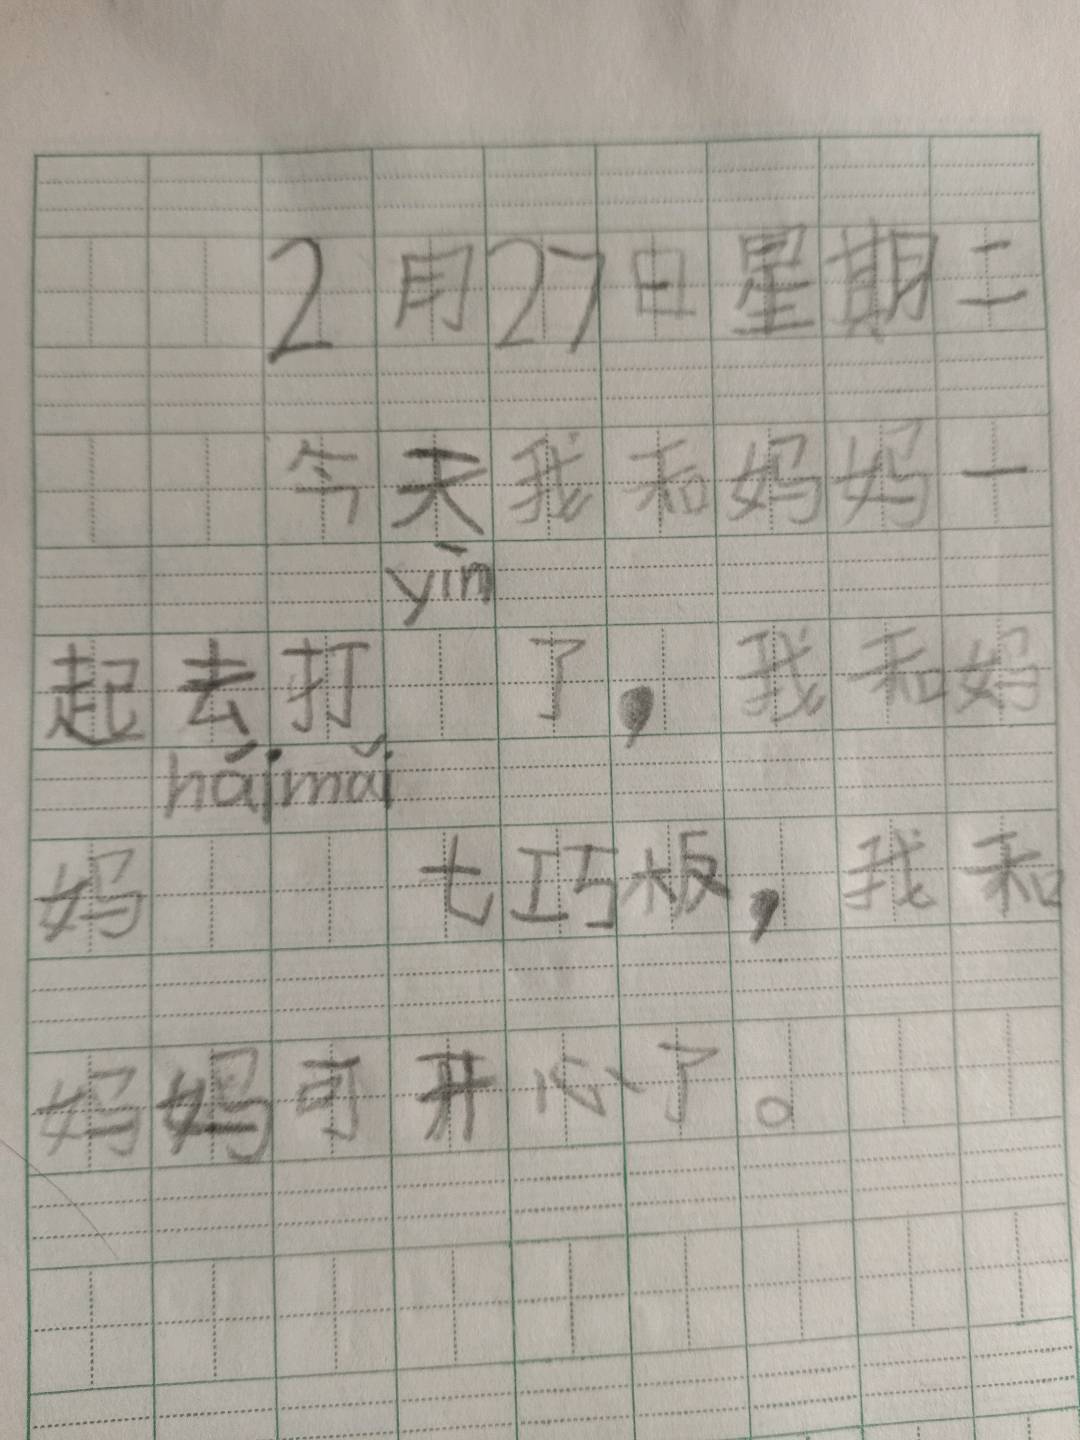 2月27日星期二
今天我和妈妈一
yīn
起去打 了，我和妈
háimǎi
妈 七巧板，我和
妈妈可开心了。